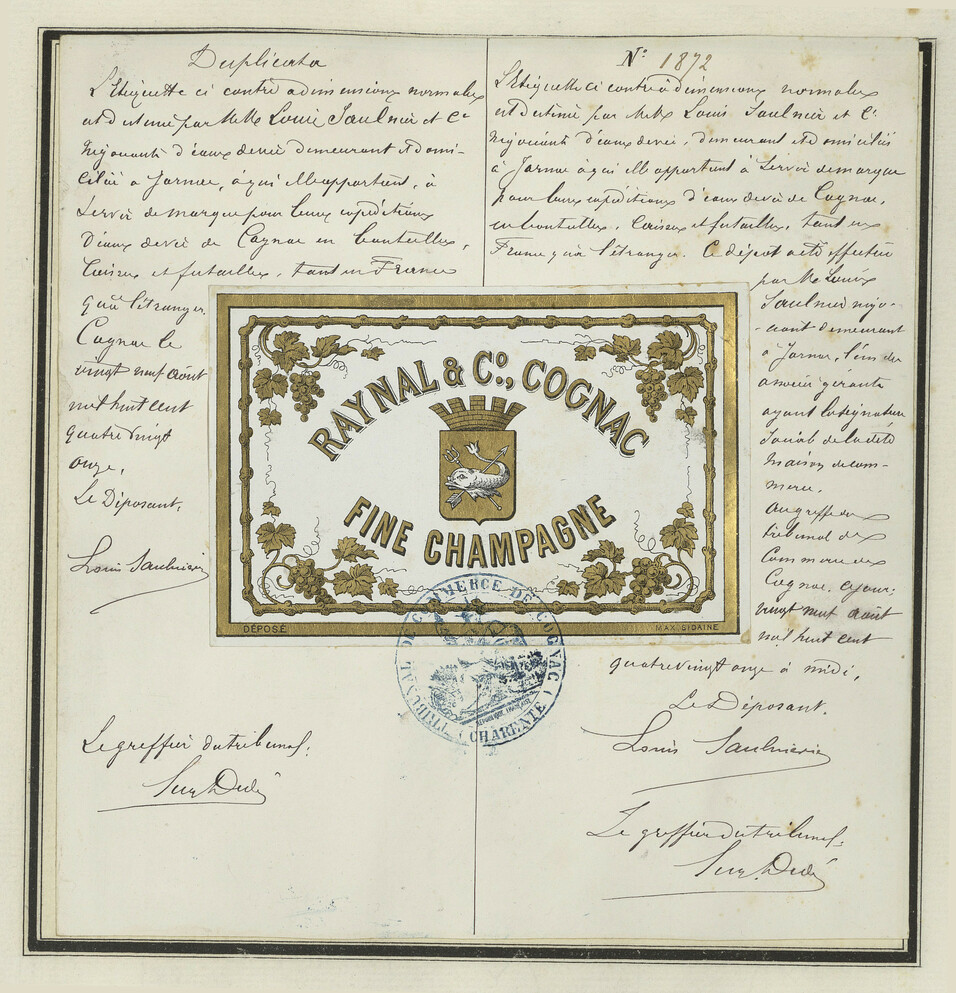 Duplicata
L'Etiquette ci contre a dimensions normales
et destinée par MrMrs Louis Saulnier et Cie
Négociants d'eaux de vie demeurant et domi-
ciliés a Jarnac, à qui elle appartient, à
servir de marque pour leurs expéditions
d'eaux de vie de Cognac en bouteilles,
Caisses et futailles, tant en France
qu'à l'étranger.
Cognac le
vingt neuf août
mil huit cent
quatre vingt
onze.
Le Déposant,
Louis Saulnier
Le greffier du tribunal,
No 1872
L'Etiquette ci contre à dimensions normales
est destinée par MrMrs Louis Saulnier et Cie
Négociants d'eaux de vie, demeurant et domiciliés
à Jarnac à qui elle appartient à servir de marque
pour leurs expéditions d'eaux de vie de Cognac,
en bouteilles, Caisses et futailles, tant en
France qu'à l'étranger. Ce dépôt a été effectué
par Mr Louis
Saulnier négo-
-ciant demeurant
à Jarnac, l'un des
associés gérants
ayant la signature
sociale de la dite
maison de com-
merce.
au greffe du
tribunal de
Commerce de
Cognac, ce jour
vingt neuf août
mil huit cent
quatre vingt onze à midi,
Le Déposant.
Louis Saulnier
Le greffier du tribunal,
RAYNAL & Co., COGNAC
FINE CHAMPAGNE
DÉPOSÉ
MAX SIDAINE
TRIBUNAL DE COMMERCE DE COGNAC
(CHARENTE)
RÉPUBLIQUE FRANÇAISE